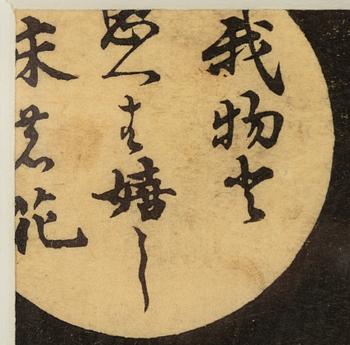 我物と
思へは嬉し
末 花